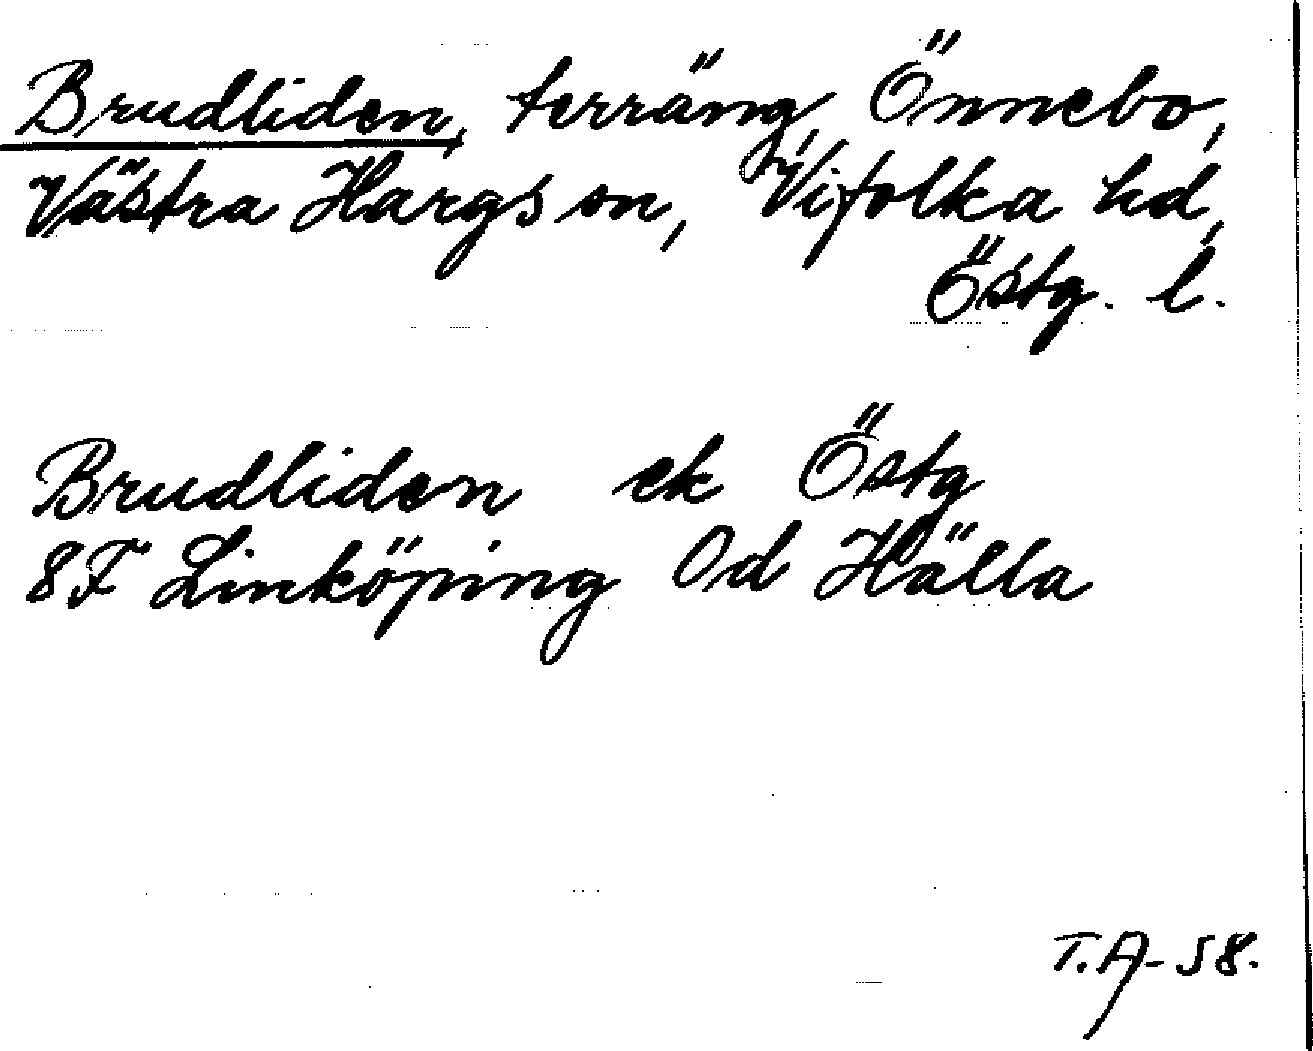 Brudliden, terräng, Önnebo,
Västra Hargs sn, Vifolka hd,
Östg. l.
Brudliden ek Östg
8F Linköping 0d Hälla
T.A-58.